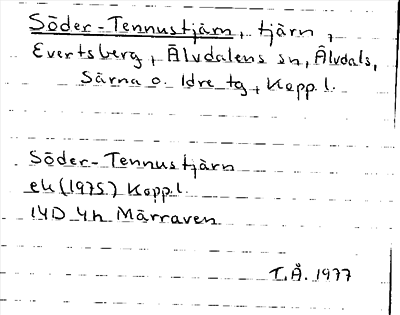 Söder-Tennustjärn, tjärn,
Evertsberg, Älvdalens sn, Älvdals,
Särna o. Idre tg, Kopp. l.
Söder-Tennustjärn
ek (1975) Kopp. l.
14D 4h Märraven
T.Å. 1977